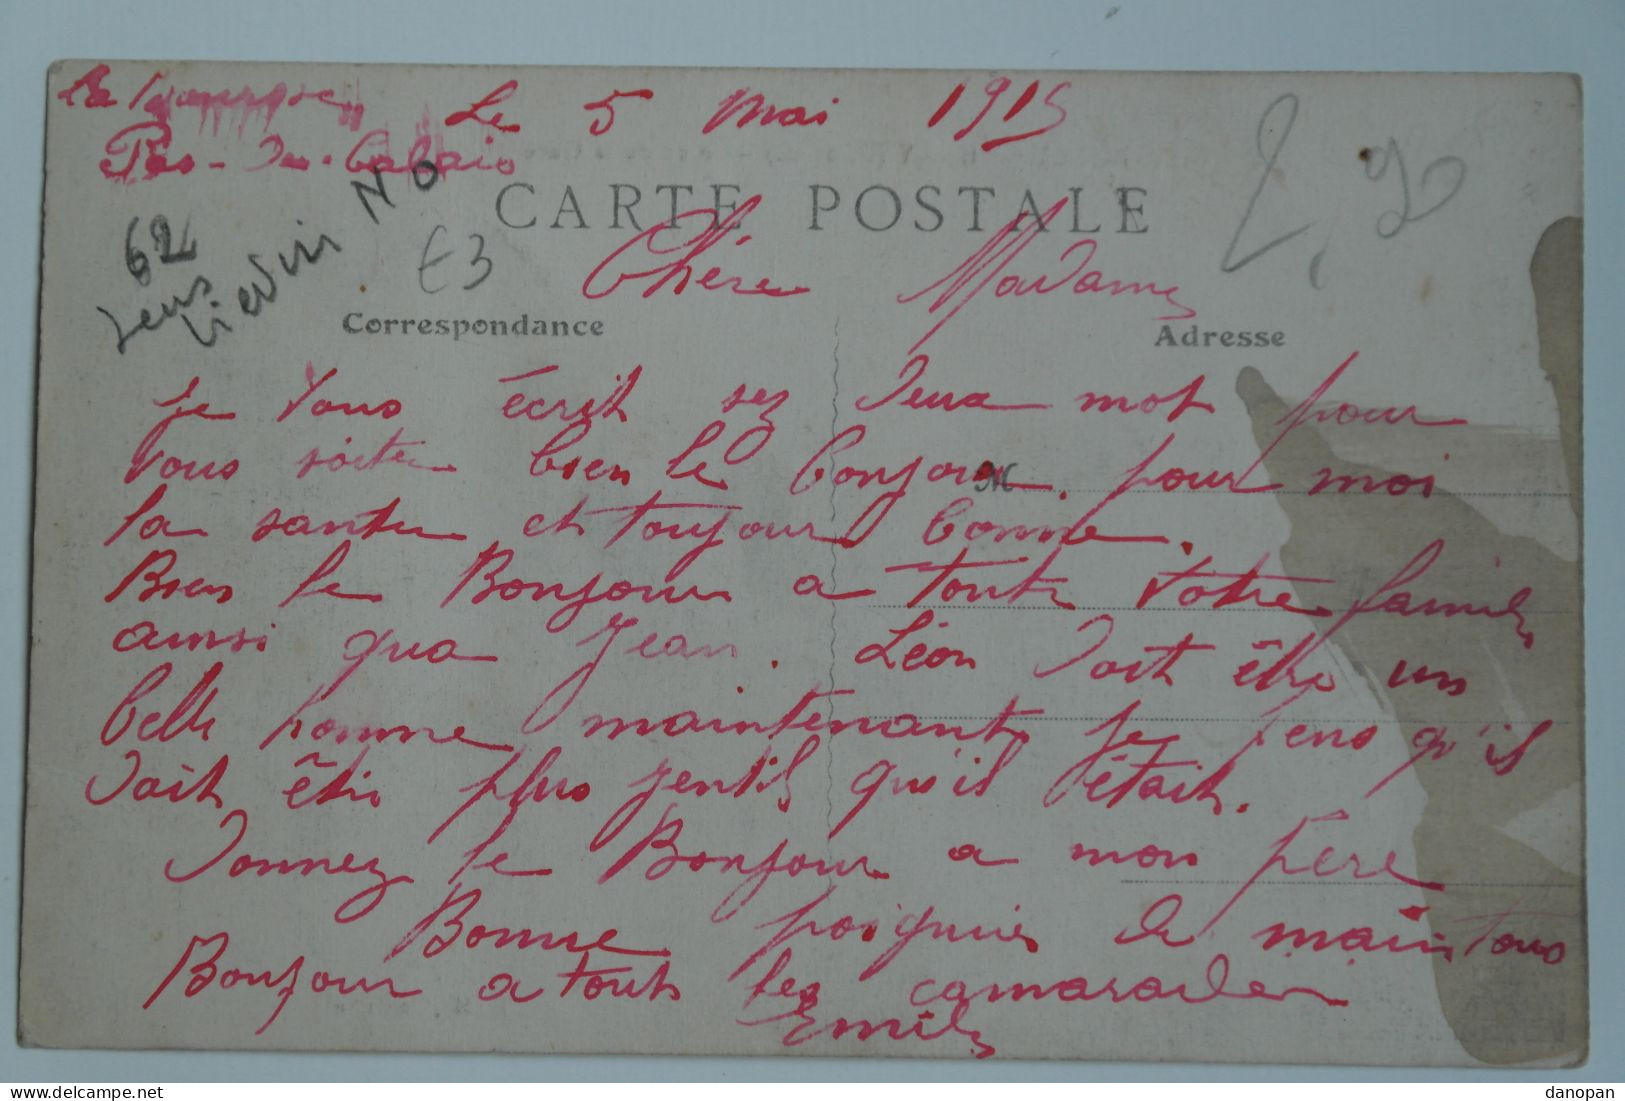 Le 5 Mai 1915
Pas-du-Calais
CARTE POSTALE
62
Lens
Lievin NO
€3
2,90
Chère Madame
Correspondance
Adresse
Je vous écrit sez deux mot pour
vous soiter bien le bonjour. pour moi
M
la santer et toujour bonne.
Bien le Bonjour a toute votre famille
ainsi qua Jean. Léon doit être un
belle homme maintenant je pens qu'il
doit être plus gentil qu'il était.
Donnez le Bonjour a mon père
Bonne poigniés de main tous
Bonjour a touts les camarades
Emile
danopan